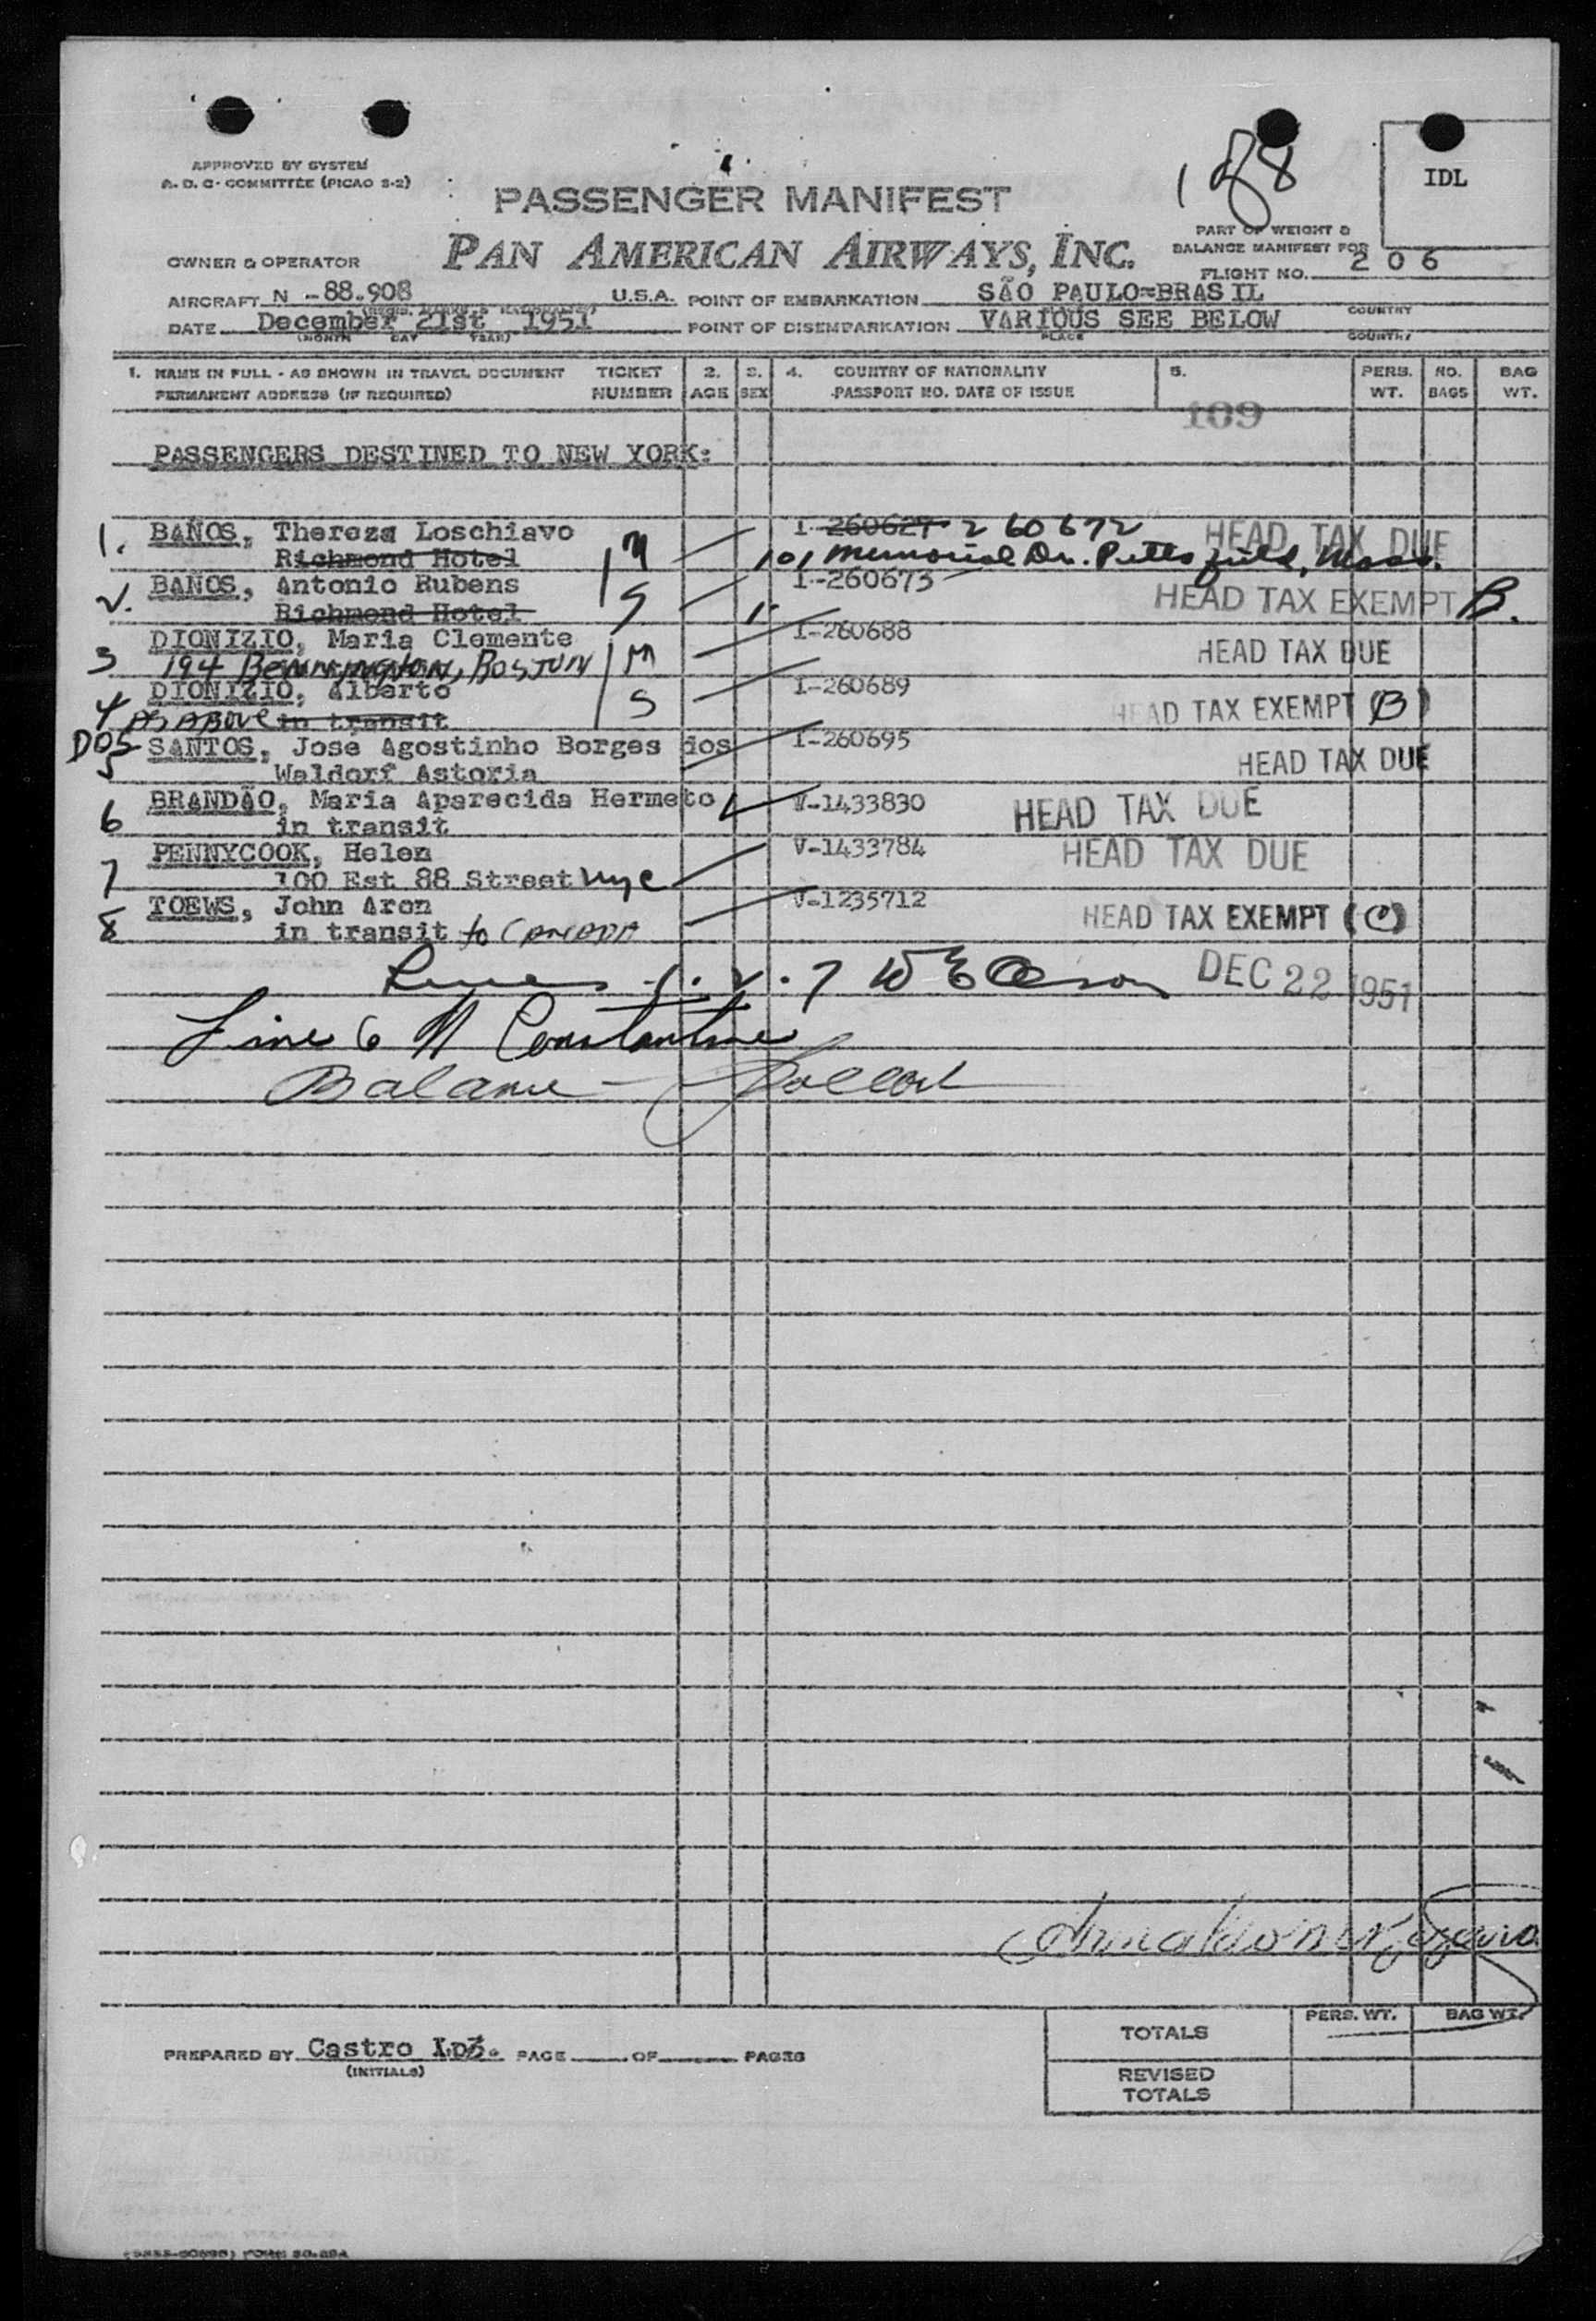 APPROVED BY SYSTEM
A. D. C. COMMITTEE (PICAO S-2)
188
IDL
PASSENGER MANIFEST
PAN AMERICAN AIRWAYS, INC.
PART OF WEIGHT &
BALANCE MANIFEST FOR
FLIGHT NO. 206
OWNER & OPERATOR
AIRCRAFT N -88.908 U.S.A. POINT OF EMBARKATION SÃO PAULO-BRASIL
COUNTRY
DATE December 21st 1951 POINT OF DISEMBARKATION VARIOUS SEE BELOW
(MONTH DAY YEAR) PLACE COUNTRY
1. NAME IN FULL - AS SHOWN IN TRAVEL DOCUMENT TICKET 2. 3. 4. COUNTRY OF NATIONALITY 5. PERS. NO. BAG
PERMANENT ADDRESS (IF REQUIRED) NUMBER AGE SEX PASSPORT NO. DATE OF ISSUE WT. BAGS WT.
109
PASSENGERS DESTINED TO NEW YORK:
1. BAÑOS, Thereza Loschiavo M I-260627 260672 HEAD TAX DUE
Richmond Hotel 101 Memorial Dr. Pittsfield, Mass.
2. BAÑOS, Antonio Rubens S I-260673 HEAD TAX EXEMPT B.
Richmond Hotel
3 DIONIZIO, Maria Clemente M I-260688 HEAD TAX DUE
194 BENNINGTON, BOSTON
4 DIONIZIO, Alberto S I-260689 HEAD TAX EXEMPT (B)
AS ABOVE in transit
DOS SANTOS, Jose Agostinho Borges dos I-260695 HEAD TAX DUE
5 Waldorf Astoria
6 BRANDÃO, Maria Aparecida Hermeto V-1433830 HEAD TAX DUE
in transit
7 PENNYCOOK, Helen V-1433784 HEAD TAX DUE
100 Est 88 Street nyc
8 TOEWS, John Aron V-1235712 HEAD TAX EXEMPT (C)
in transit to CANADA
Lines 1. 2. 7 W E Olson DEC 22 1951
Line 6 N Constantine
Balance -
PREPARED BY Castro PAGE OF PAGES
(INITIALS)
TOTALS PERS. WT. BAG WT.
REVISED
TOTALS